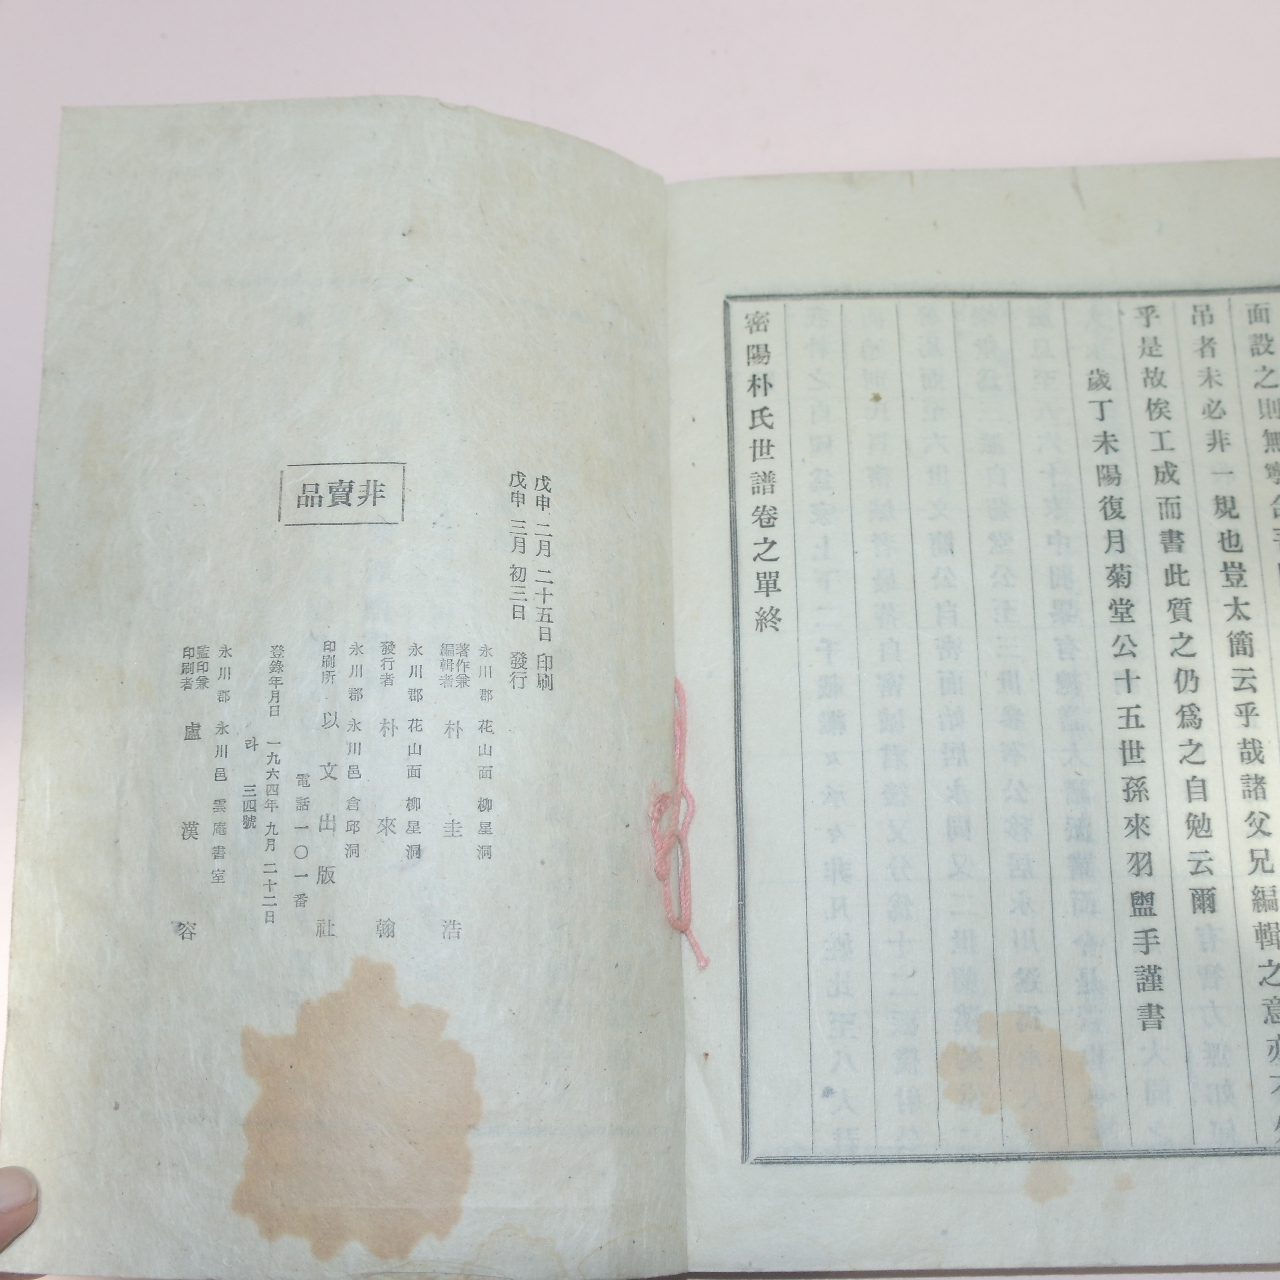 面設之則無
吊者未必非一規也豈太簡云乎哉諸父兄編輯之意
乎是故俟工成而書此質之仍爲之自勉云爾
歲丁未陽復月菊堂公十五世孫來羽盥手謹書
密陽朴氏世譜卷之單終
戊申 二月 二十五日 印刷
戊申 三月 初三日 發行
非賣品
永川郡 花山面 柳星洞
著作兼編輯者 朴圭浩
永川郡 花山面 柳星洞
發行者 朴來翰
永川郡 永川邑 倉邱洞
印刷所 以文出版社
電話一〇一番
登錄年月日 一九六四年 九月 二十二日
라 三四號
永川郡 永川邑 雲庵書室
監印兼印刷者 盧漢容